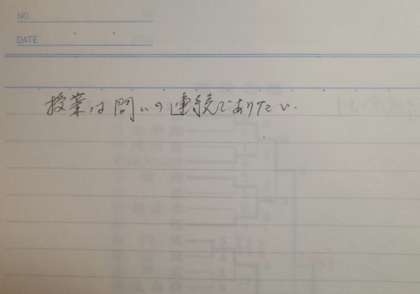 NO.
DATE
授業は問いの連続でありたい.